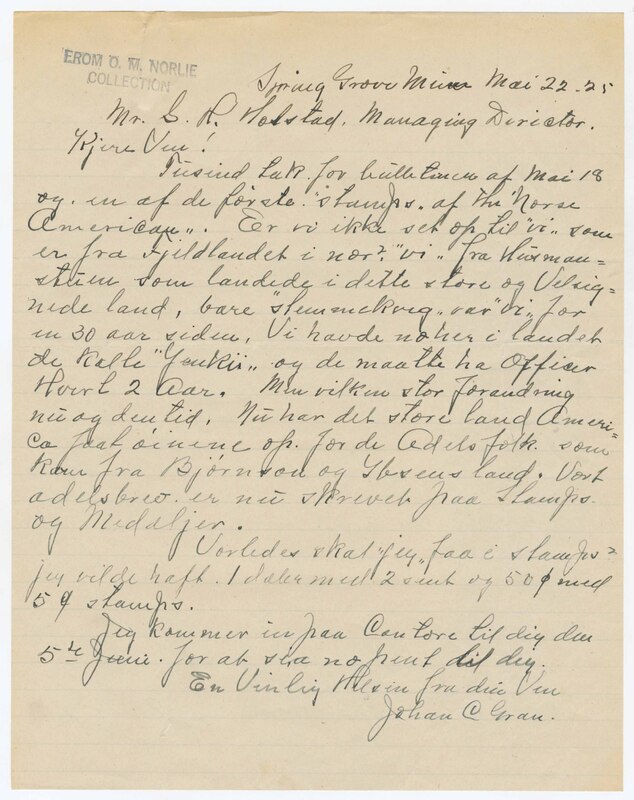 FROM O. M. NORLIE
COLLECTION
Spring Grove Minn Mai 22-25
Mr. S. H. Holstad. Managing Director.
Kjere Ven!
Tusind tak for bulletinen af Mai 18
og en af de første "stamps" af The "Norse
American". Er vi ikke set op til "vi" som
er fra Fjeldlandet i nor? "vi" fra Husman=
stuen som landede i dette store og Velsig=
nede land, bare "stemmekveg" var "vi" for
en 30 aar siden. Vi havde no her i landet
de kalte "Jenkii" og de maatte ha Officer
Hvert 2 Aar. Men vilken stor forandring
nu og den tid. Nu har det store land Ameri=
ca faat øinene op for de Adelsfolk som
kom fra Bjørnson og Ibsens land. Vort
adelsbrev er nu skrevet paa Stamps
og Medaljer.
Vorledes skal "jeg" faa i stamps?
jeg vilde haft 1 daler med 2 sent og 50¢ med
5¢ stamps.
Jeg kommer in paa Contore til dig den
5te Juni for at sia no pent til dig.
En Vinlig Hilsen fra din Ven
Johan C Gran.